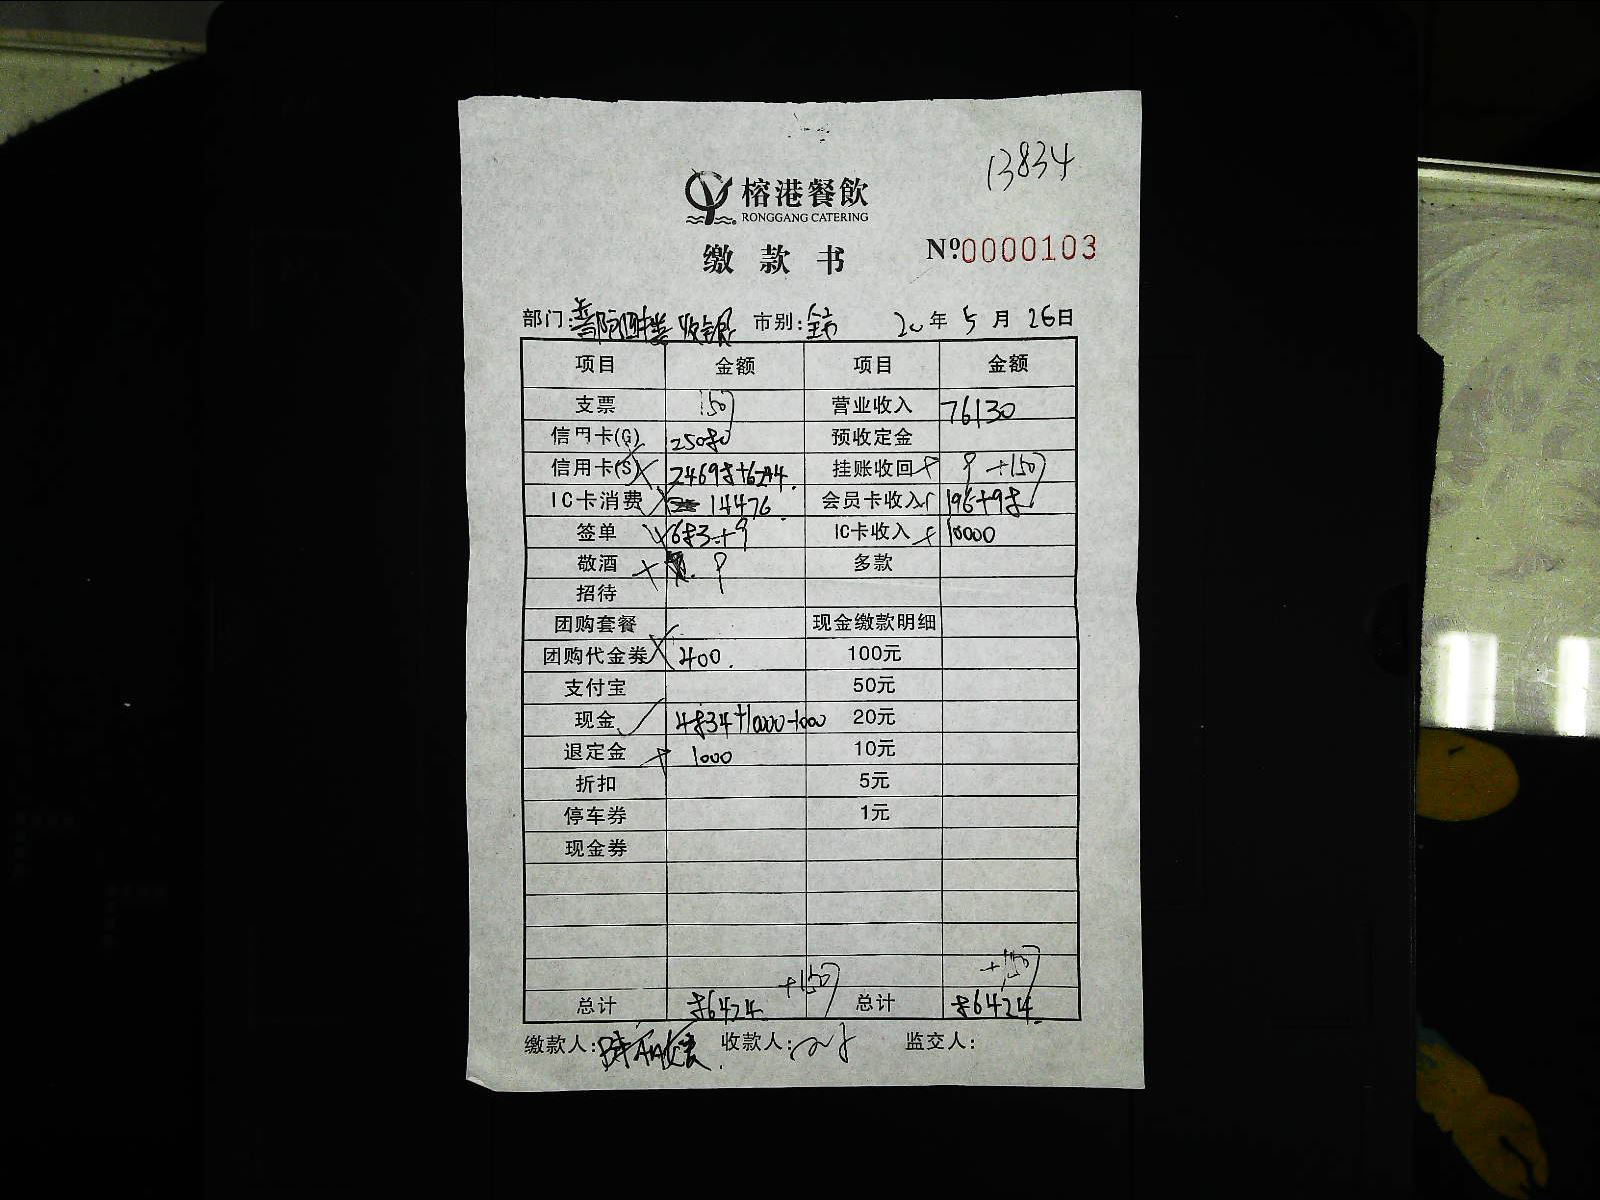 13834
榕港餐飲
RONGGANG CATERING
缴款书 Nº:0000103
部门: 收银 市别: 全市 20年5月26日
项目 金额 项目 金额
支票 150 营业收入 76130
信用卡(G) 25080 预收定金
信用卡(S) 24698+6244. 挂账收回 9 +150
IC卡消费 14476. 会员卡收入 196+98
签单 683+9 IC卡收入 10000
敬酒 9 多款
招待
团购套餐 现金缴款明细
团购代金券 400. 100元
支付宝 50元
现金 4834+10000-1000 20元
退定金 1000 10元
折扣 5元
停车券 1元
现金券
+150 +150
总计 86424. 总计 86424.
缴款人: 收款人: 监交人: